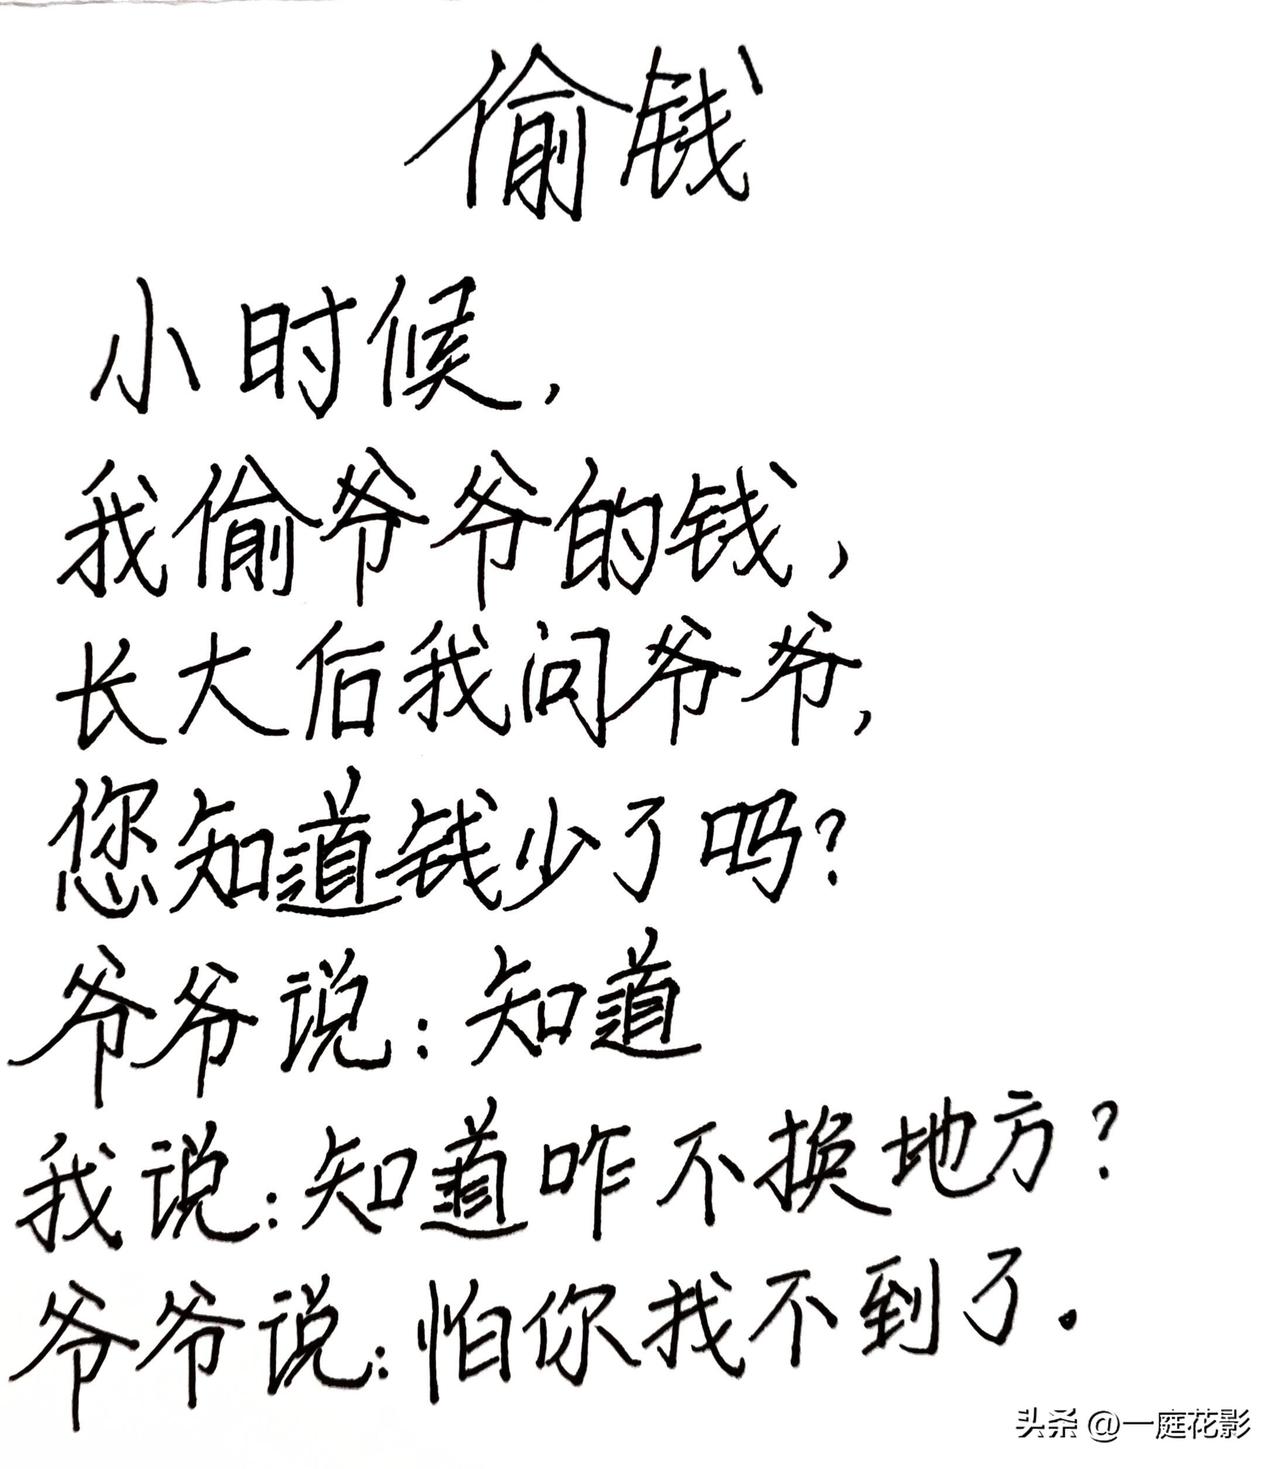 偷钱
小时候,
我偷爷爷的钱,
长大后我问爷爷,
您知道钱少了吗?
爷爷说:知道
我说:知道咋不换地方?
爷爷说:怕你找不到了.
头条 @一庭花影